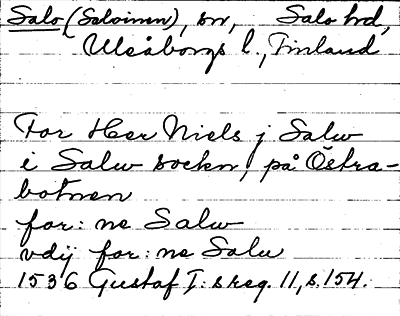 Salo (Saloinen), sn, Salo hd,
Uleåborgs l., Finland
For Her Niels j Salw
i Salw socken, på Östra-
botnen
for: ne Salw
vdij for: ne Salu
1536 Gustaf I: s reg. 11, s. 154.